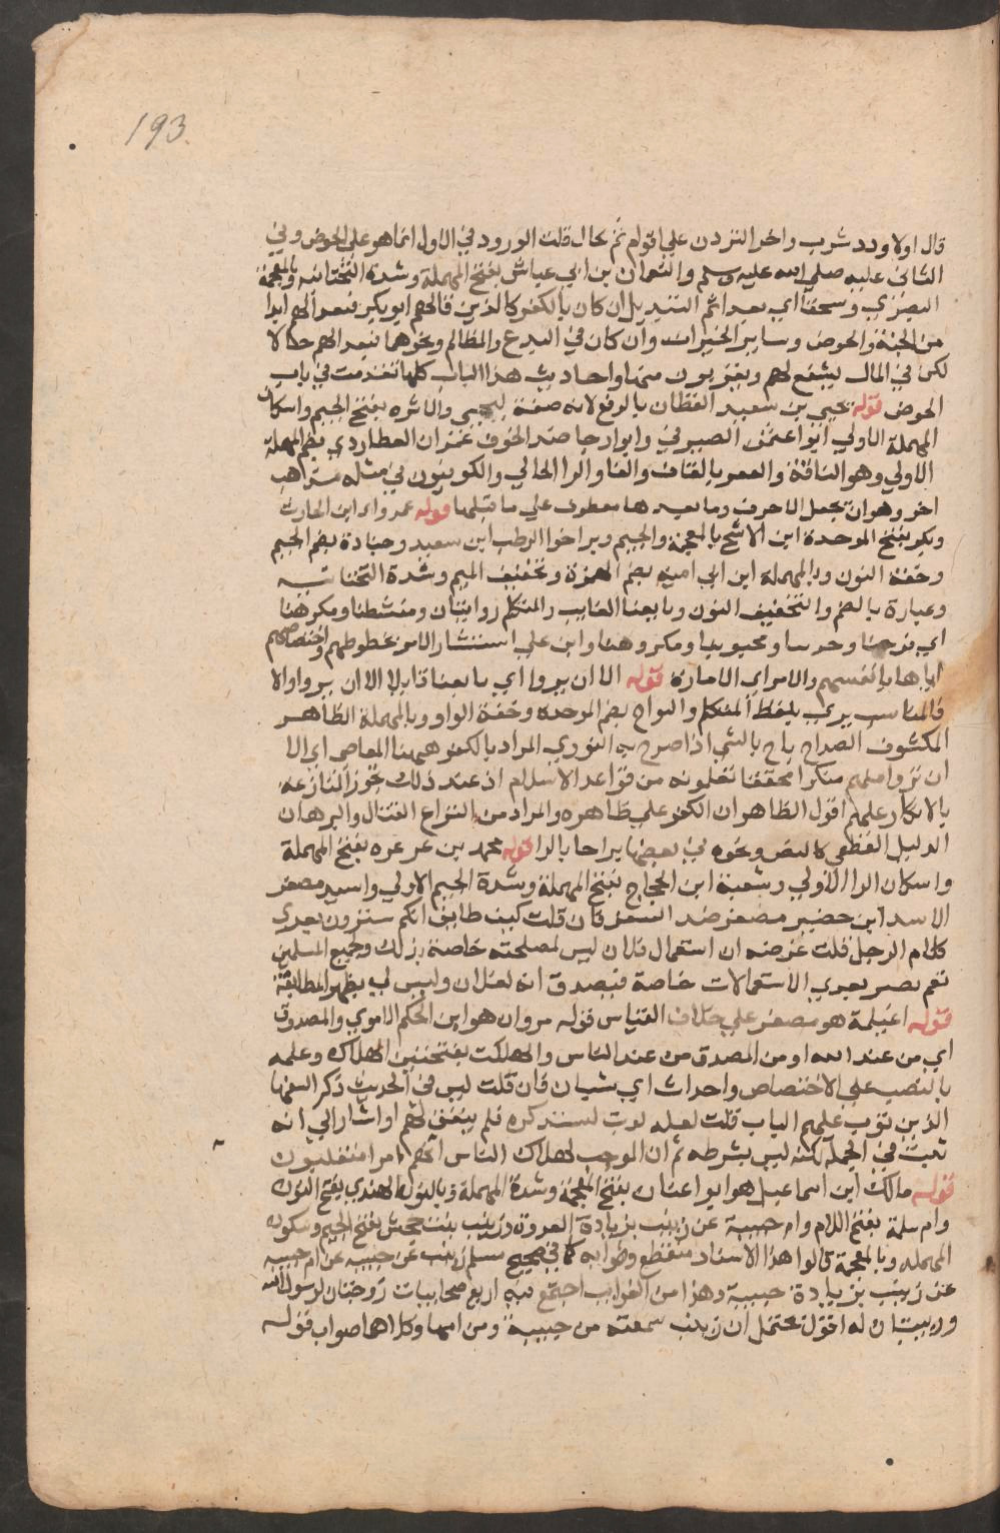 193
قال اولا ورد شرب واخرا لتردن علي اقوام ثم يحال قلت الورود في الاول انما هو علي الحوض وفي
الثاني عليه صلي الله عليه وسلم والنعمان بن ابي عياش بفتح المهملة وشدة التحتانية وبالمعجمة
وسحقا اي بعدا ثم التبديل ان كان بالكفر كالذين قاتلهم ابو بكر فبعد لهم ابدا
من الجنة والحوض وساير الخيرات وان كان في البدع والمظالم ونحوهما فبعد لهم حالا
لكن في المال يشفع لهم واحاديث هذا الباب كلها تقدمت في باب
الحوض قوله يحيي بن سعيد القطان بالرفع لانه صفة ليحيي والاثره بفتح الجيم واسكان
المهملة الاولي ابو عثمن الصيرفي وابو رجا ضد الخوف عمران العطاردي بضم المهملة
الاولي وهو
اخر وهو ان يجعل الاحرف وما بعدها معطوف علي ما قبلها قوله عمرو اي ابن الحارث
وبكير بفتح الموحدة ابن الاشج بالمعجمة والجيم وبسر اخو الرطب ابن سعيد وجنادة بضم الجيم
وخفة النون وبالمهملة ابن ابي امية بضم الهمزة وتخفيف الميم وشدة التحتانية
وعبارة بالضم والتخفيف النون وبايعنا الغايب والمتكلم روايتان ومنشطنا ومكرهنا
اي فرحنا وحزننا ومحبوبنا ومكروهنا وابن علي استئثار الامر بحظوظهم واختصاصهم
اياها بانفسهم والامر اي الامارة قوله الا ان يروا اي بايعنا قايلا الا ان يروا والا
فالمناسب يري بلفظ المتكلم والبواح بضم الموحدة وخفة الواو وبالمهملة الظاهر
المكشوف الصراح باح بالشي اذا صرح به النووي المراد بالكفر ههنا المعاصي اي الا
ان تروا منهم منكرا محققا تعلمونه من قواعد الاسلام اذ عند ذلك تجوز المنازعة
بالانكار عليهم اقول الظاهر ان الكفر علي ظاهره والمراد من النزاع القتال والبرهان
الدليل القطعي كالنص ونحوه في بعضها براحا بالرا قوله محمد بن عرعره بفتح المهملة
واسكان الرا الاولي وشعبة ابن الحجاج بفتح المهملة وشدة الجيم الاولي واسيد مصغر
الاسد ابن حضير مصغر ضد السفر فان قلت كيف طابق انكم سترون بعدي
كلام الرجل قلت غرضه ان استعمال فلان ليس لمصلحته خاصة بل لك ولجميع المسلمين
نعم يصير بعدي الاستعمالات خاصة فيصدق انه لفلان وليس لي يظهر المطابقة
قوله اغيلمة هو مصغر علي خلاف القياس قوله مروان هو ابن الحكم الاموي والمصدوق
اي من عند الله او من المصدق من عند الناس والهلكت بفتحتين الهلاك وغلمة
بالنصب علي الاختصاص واحداث اي شبان فان قلت ليس في الحديث ذكر السفها
الذين بوب عليهم الباب قلت لعله بوب ليستذكره فلم يتفق لهم او اشار الي انه
ثبت في الجملة لكنه ليس بشرطه ثم ان الموجب لهلاك الناس انهم امرا متغلبون
قوله مالك ابن اسماعيل هو ابو غسان بفتح المعجمة وشدة المهملة وبالنون الهندي بفتح النون
وام سلمة بفتح اللام وام حبيبة عن زينب بزيادة العروة زينب بنت جحش بفتح الجيم وسكون
المهملة وبالمعجمة قالوا هذا الاسناد منقطع وصوابه كما في صحيح مسلم زينب عن حبيبة عن ام حبيبة
عن زينب بزيادة حبيبة وهذا من الغرايب اجتمع فيه اربع صحابيات زوجتان لرسول الله
وربيبتان له اقول يحتمل ان زينب سمعته من حبيبة ومن امها وكلاهما صواب قوله